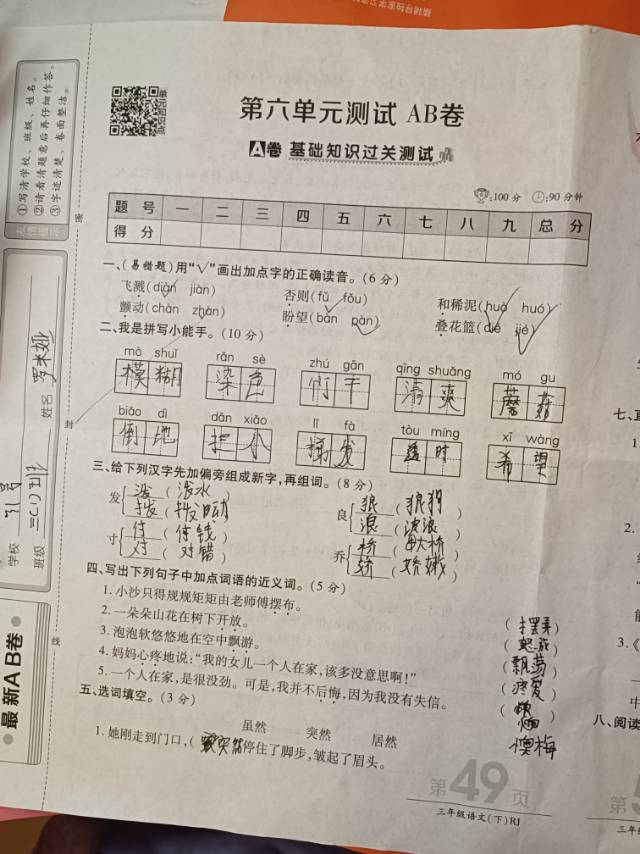 第六单元测试 AB卷
A卷 基础知识过关测试
:100分 :90分钟
题号 一 二 三 四 五 六 七 八 九 总分
得分
一、(易错题)用“√”画出加点字的正确读音。(6分)
飞溅(diàn jiàn) 否则(fǔ fǒu) 和稀泥(huò huó)
颤动(chàn zhàn) 盼望(bàn pàn) 叠花篮(dié jié)
二、我是拼写小能手。(10分)
mò shuǐ rǎn sè zhú gān qīng shuǎng mó gu
模糊 染色 竹干 清爽 蘑菇
biāo dì dǎn xiǎo lǐ fà tòu míng xī wàng
倒地 把小 发 时 希望
三、给下列汉字先加偏旁组成新字,再组词。(8分)
发 泼(泼水) 良 狼(狼狗)
拨(拨动) 浪(波浪)
寸 付(付钱) 乔 桥(大桥)
对(对错) 娇(娇娥)
四、写出下列句子中加点词语的近义词。(5分)
1.小沙只得规规矩矩由老师傅摆布。(摆弄)
2.一朵朵山花在树下开放。
3.泡泡软悠悠地在空中飘游。(飘荡)
4.妈妈心疼地说:“我的女儿一个人在家,该多没意思啊!”(疼爱)
5.一个人在家,是很没劲。可是,我并不后悔,因为我没有失信。
懊梅
五、选词填空。(3分)
虽然 突然 居然
1.她刚走到门口,( 停住了脚步,皱起了眉头。
第49页
三年级语文(下)RJ
①写清学校、班级、姓名。
②请看清题意后再仔细作答。
③字迹清楚、卷面整洁。
友情提示
学校
班级 三(1)班
姓名 罗米娅
密
封
线
最新AB卷
七、
1.
2.
3.
八、阅读
第5
三年